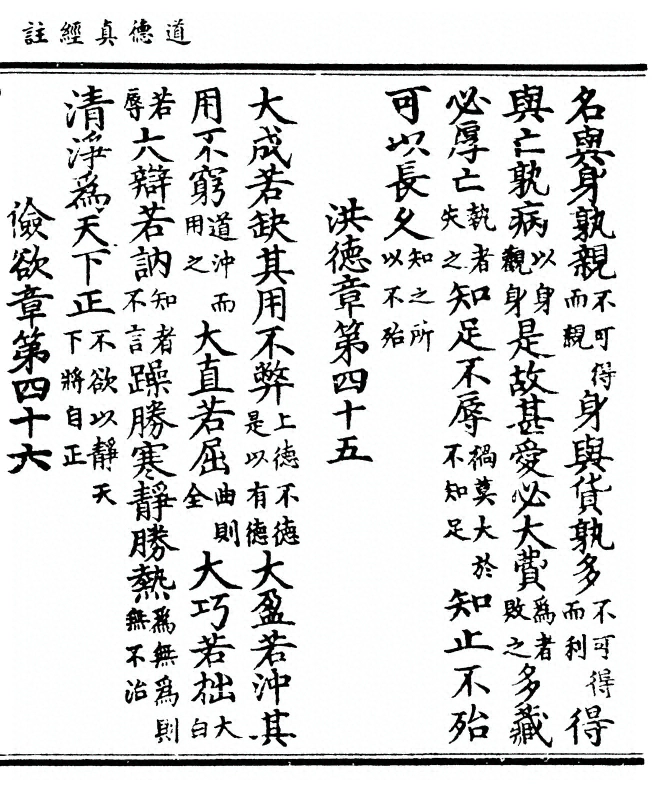 道德真經註
名與身孰親不可得而親身與貨孰多不可得而利得
與亡孰病以身觀身是故甚愛必大費為者敗之多藏
必厚亡執者失之知足不辱禍莫大於不知足知止不殆
可以長久知之所以不殆
洪德章第四十五
大成若缺其用不弊上德不德是以有德大盈若沖其
用不窮道沖而用之大直若屈曲則全大巧若拙大白
若辱大辯若訥知者不言躁勝寒靜勝熱為無為則無不治
清淨為天下正不欲以靜天下將自正
儉欲章第四十六